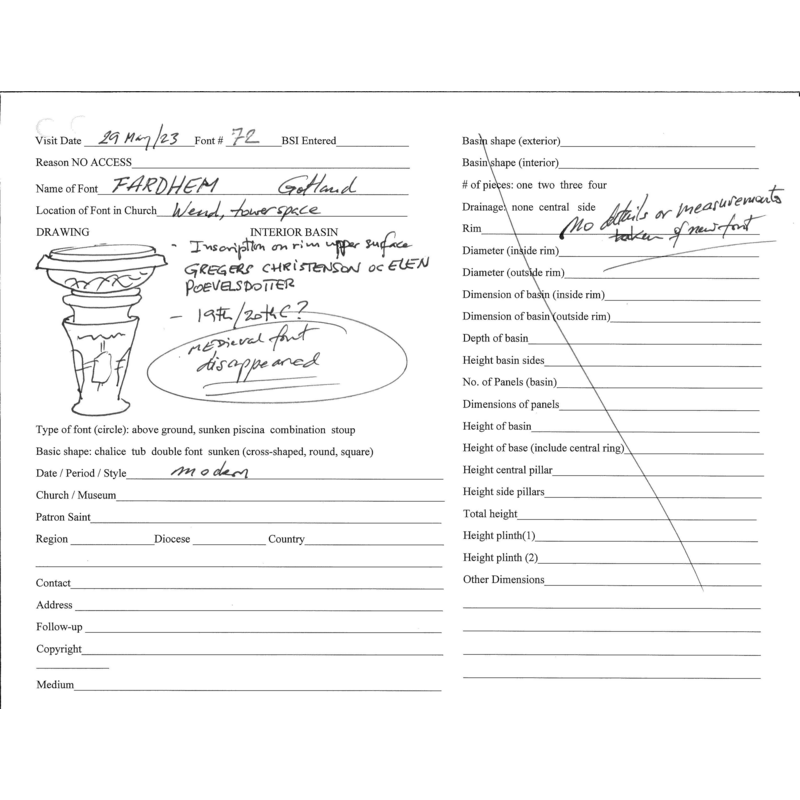 Visit Date 29 May/23 Font # 72 BSI Entered
Reason NO ACCESS
Name of Font FARDHEM Gotland
Location of Font in Church W end, tower space
DRAWING INTERIOR BASIN
- Inscription on rim upper surface
GREGERS CHRISTENSON OC ELEN
POEVELSDOTTER
- 19th/20thC?
MEDieval font
disappeared
Type of font (circle): above ground, sunken piscina combination stoup
Basic shape: chalice tub double font sunken (cross-shaped, round, square)
Date / Period / Style modern
Church / Museum
Patron Saint
Region Diocese Country
Contact
Address
Follow-up
Copyright
Medium
Basin shape (exterior)
Basin shape (interior)
# of pieces: one two three four
Drainage: none central side
No details or measurements
taken of new font
Rim
Diameter (inside rim)
Diameter (outside rim)
Dimension of basin (inside rim)
Dimension of basin (outside rim)
Depth of basin
Height basin sides
No. of Panels (basin)
Dimensions of panels
Height of basin
Height of base (include central ring)
Height central pillar
Height side pillars
Total height
Height plinth(1)
Height plinth (2)
Other Dimensions